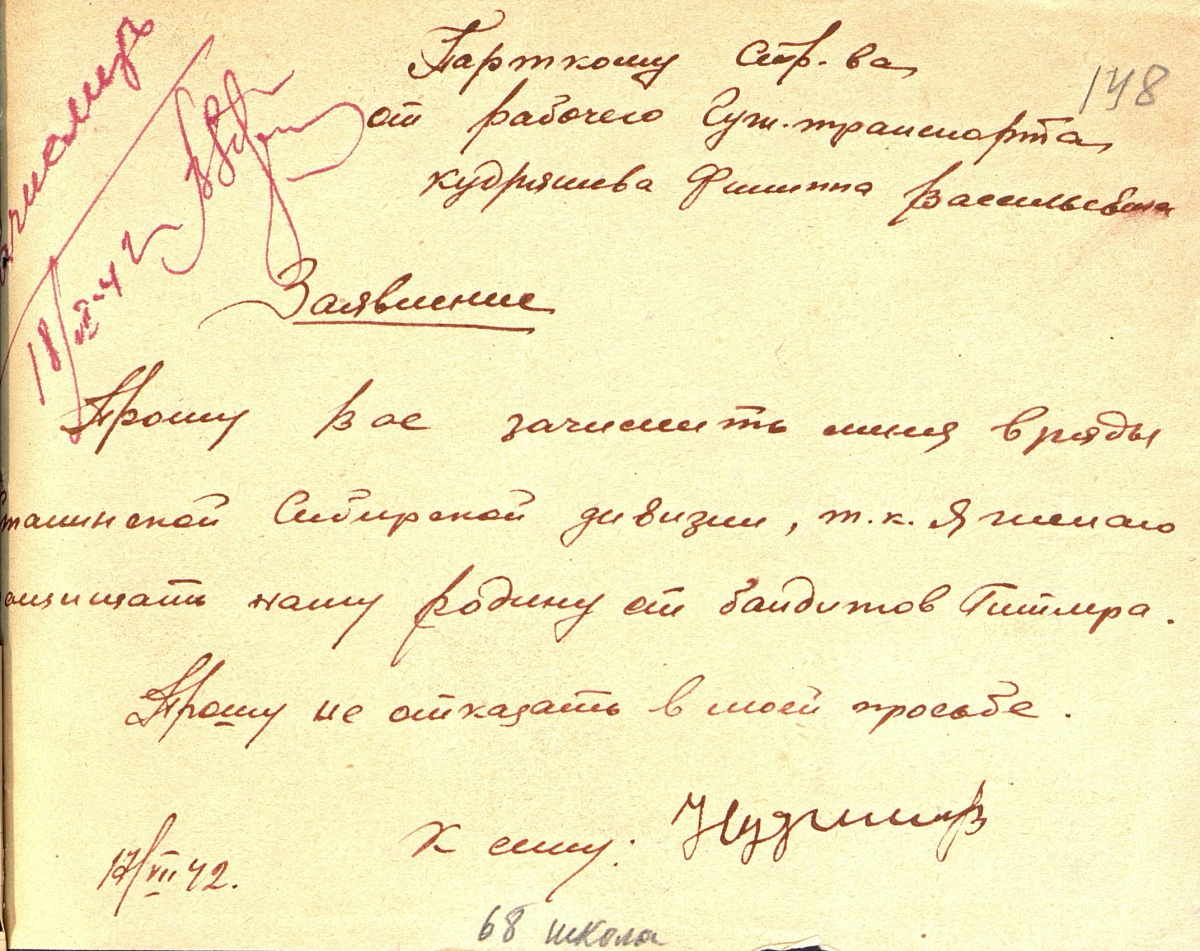 Парткому Стр.ва
148
от рабочего Гуж.транспорта
Кудряшева Филиппа Васильевича
18/VII-42
Заявление
Прошу Вас зачислить меня в ряды
талинской Сибирской дивизии, т.к. Я желаю
ащищать нашу родину от бандитов Гитлера.
Прошу не отказать в моей просьбе.
К сему: Кудряшев
17/VII 42.
68 школа